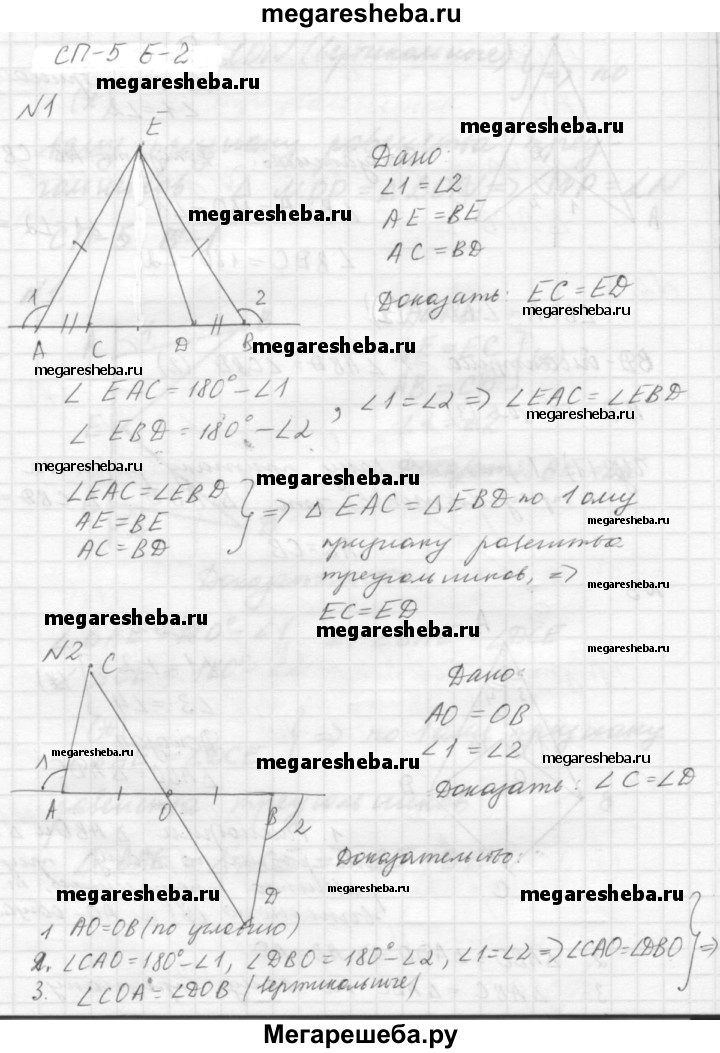 megaresheba.ru
СП-5 Б-2
megaresheba.ru
N1
E
megaresheba.ru
Дано:
∠1=∠2
AE=BE
megaresheba.ru
AC=BD
Доказать: EC=ED
megaresheba.ru
1
2
A C D B
megaresheba.ru
megaresheba.ru
∠ EAC=180°-∠1
∠ EBD=180°-∠2
, ∠1=∠2=> ∠EAC=∠EBD
megaresheba.ru
megaresheba.ru
megaresheba.ru
∠EAC=∠EBD
AE=BE
AC=BD
=> △ EAC=△EBD по 1ому
megaresheba.ru
признаку равенства
треугольников, =>
megaresheba.ru
EC=ED
megaresheba.ru
megaresheba.ru
megaresheba.ru
N2
C
Дано
AO=OB
∠1=∠2
megaresheba.ru
megaresheba.ru
megaresheba.ru
Доказать: ∠C=∠D
1
A O B
2
D
Доказательство:
megaresheba.ru
megaresheba.ru
megaresheba.ru
1 AO=OB (по условию)
2. ∠CAO=180°-∠1, ∠DBO=180°-∠2, ∠1=∠2=>∠CAO=∠DBO =>
3. ∠COA=∠DOB (вертикальные)
Мегарешеба.ру